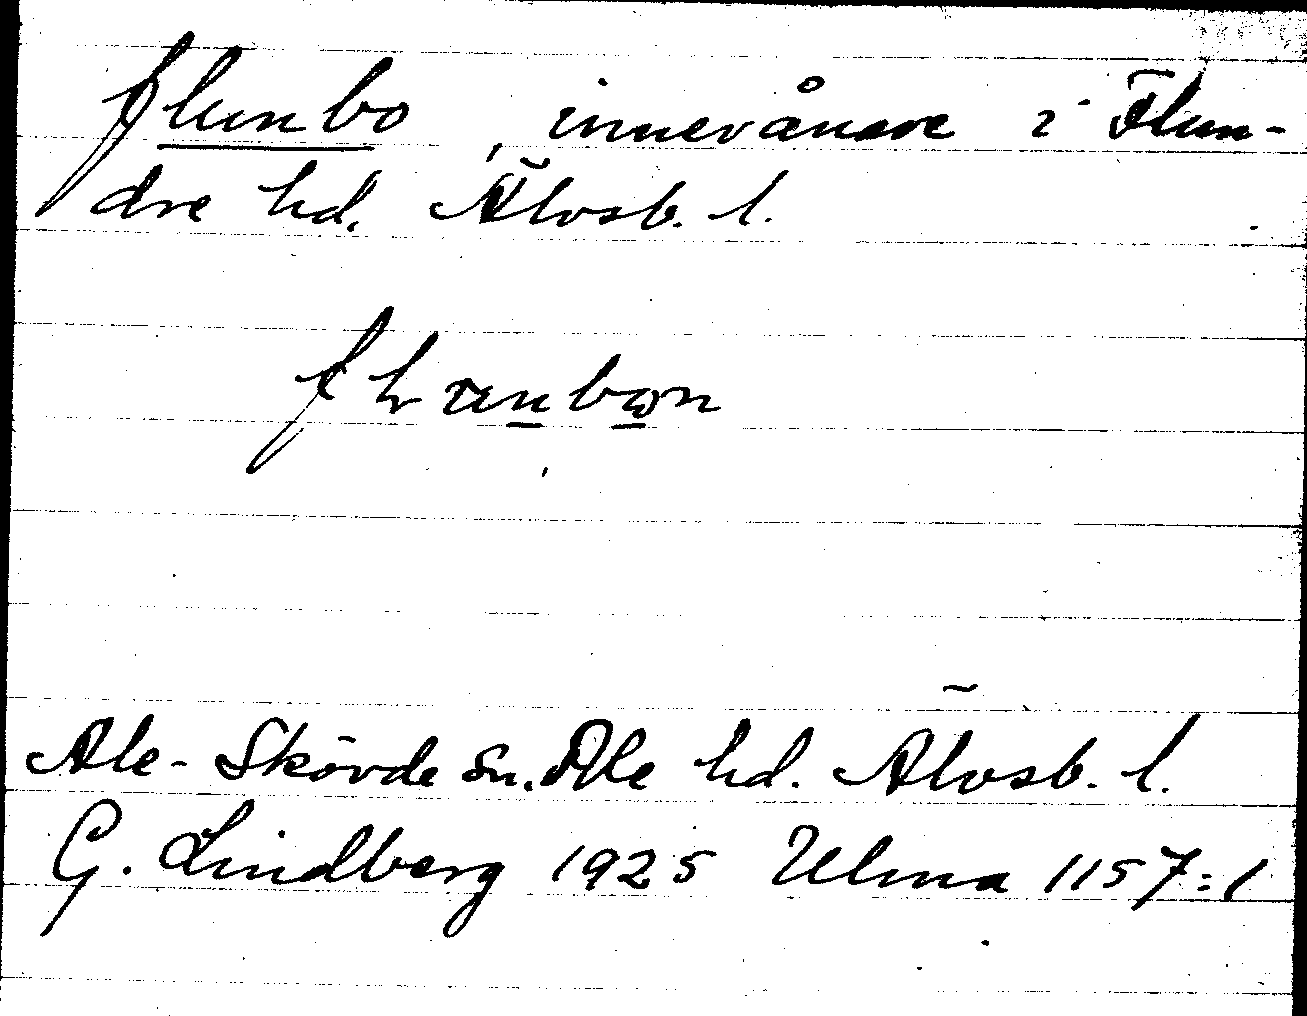 flunbo, innevånare i Flun-
dre hd. Älvsb. l.
Ale-Skövde sn. Ale hd. Älvsb. l.
G. Lindberg 1925 Ulma 1157:1